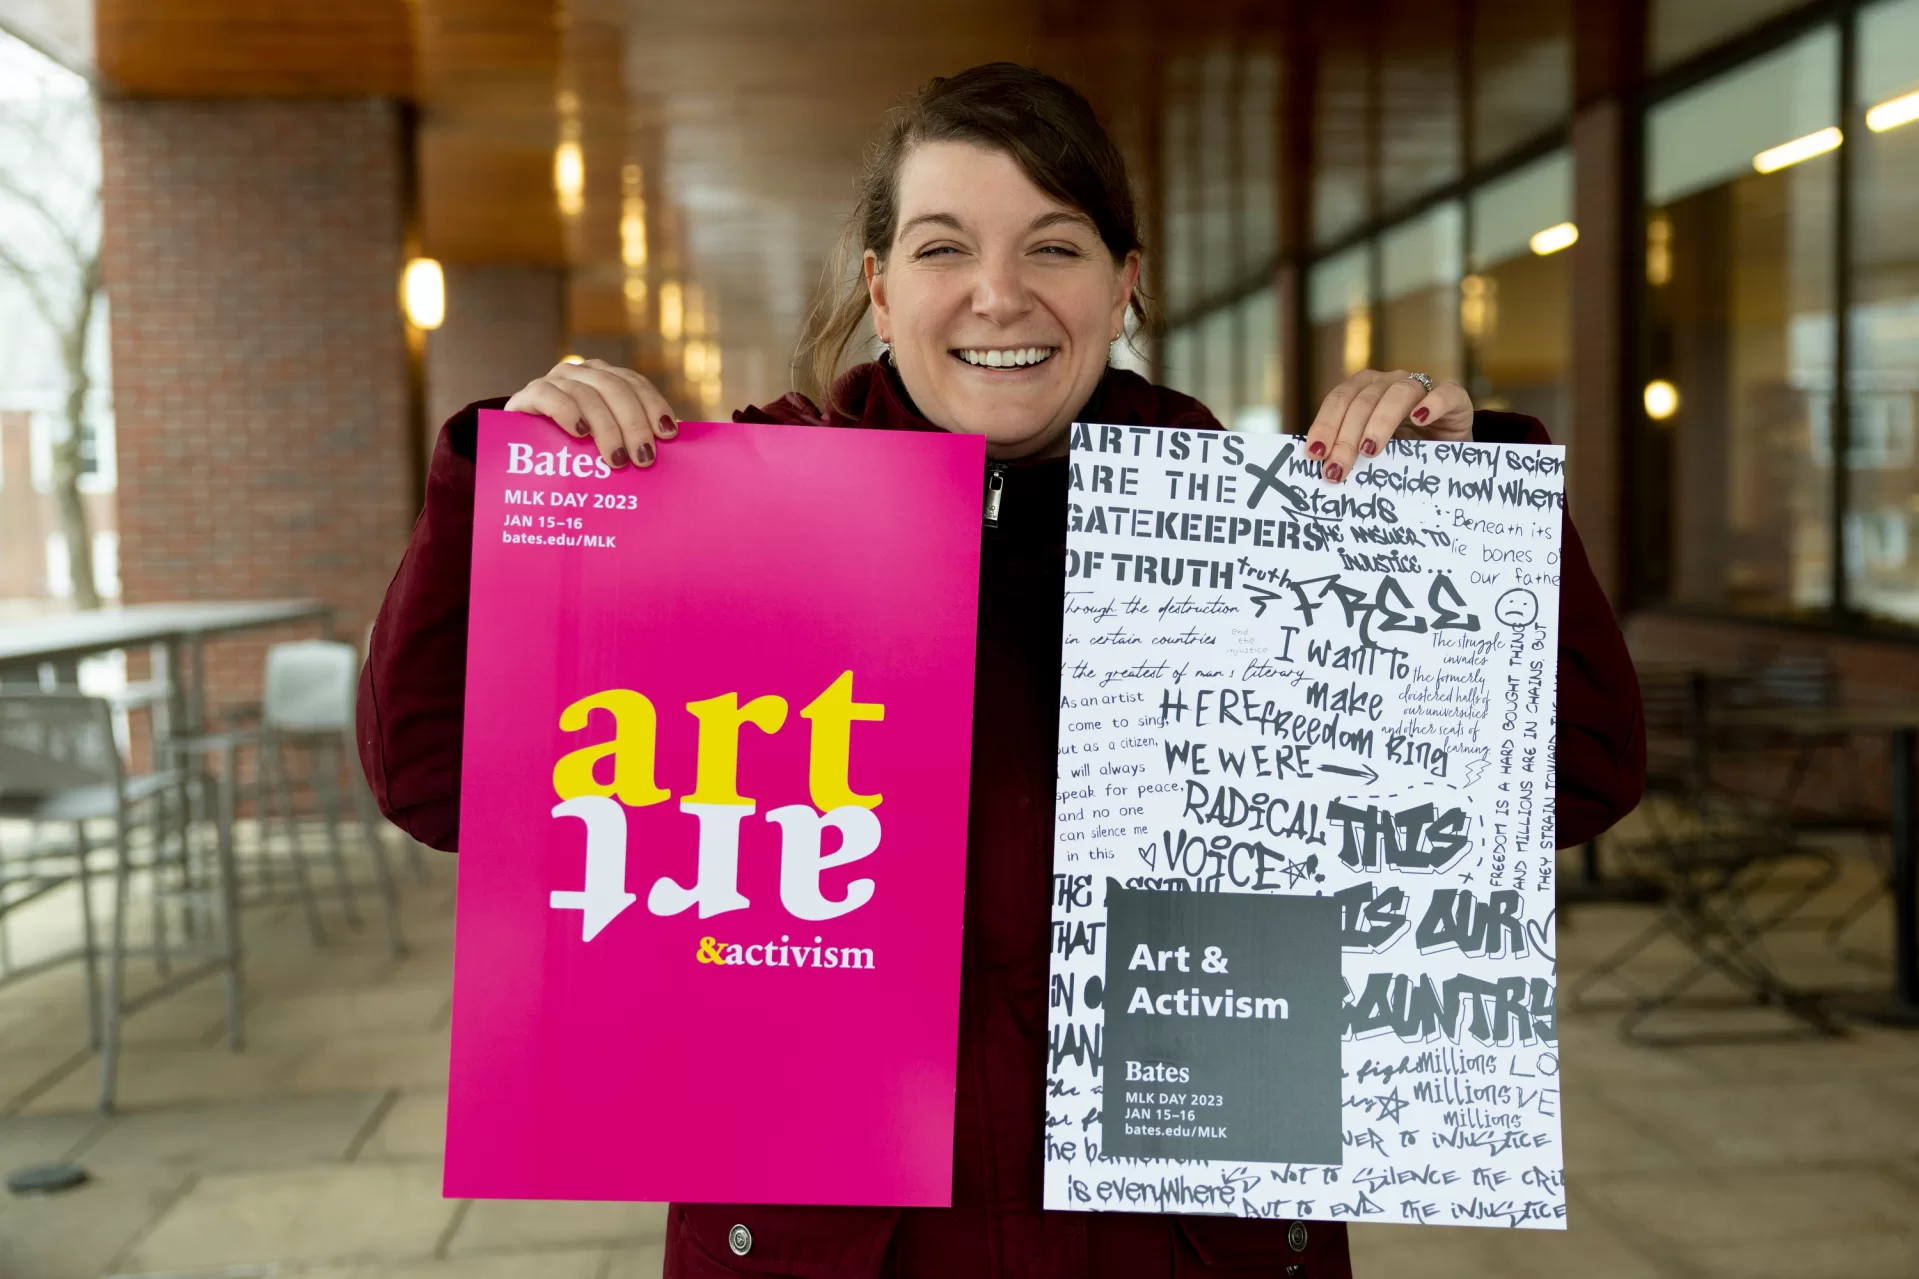 Bates
MLK DAY 2023
JAN 15–16
bates.edu/MLK
art
art
&activism
ARTISTS
ARE THE
GATEKEEPERS
OF TRUTH
truth
every scien
decide now where
stands
THE ANSWER TO
INJUSTICE ...
Beneath its
lie bones o
our fathe
FREE
through the destruction
in certain countries
end
the
injustice
the greatest of man's literary
I want to
make
freedom Ring
The struggle
invades
the formerly
cloistered halls of
our universities
and other seats of
learning.
As an artist
come to sing,
but as a citizen,
I will always
speak for peace,
and no one
can silence me
in this
HERE
WE WERE
RADICAL
VOICE
THIS
IS OUR
COUNTRY
FREEDOM IS A HARD BOUGHT THING
AND MILLIONS ARE IN CHAINS, BUT
THEY STRAIN TOWARD THE
THE
THAT
IN
HAN
the
is everywhere
Art &
Activism
Bates
MLK DAY 2023
JAN 15–16
bates.edu/MLK
fight
millions
millions
millions
LO
VE
TO INJUSTICE
IS NOT TO SILENCE THE CRIT
BUT TO END THE INJUSTICE